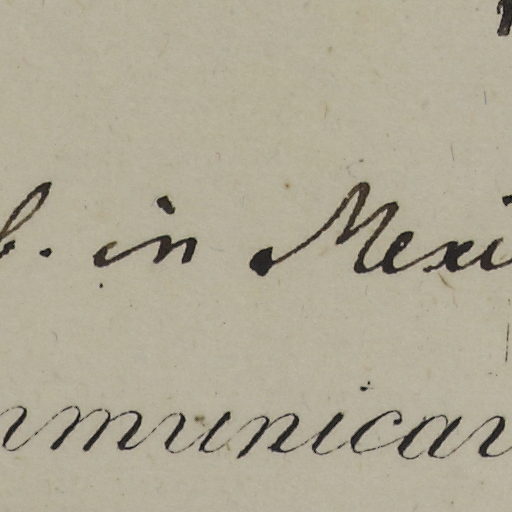 b. in Mexi
mmunicar